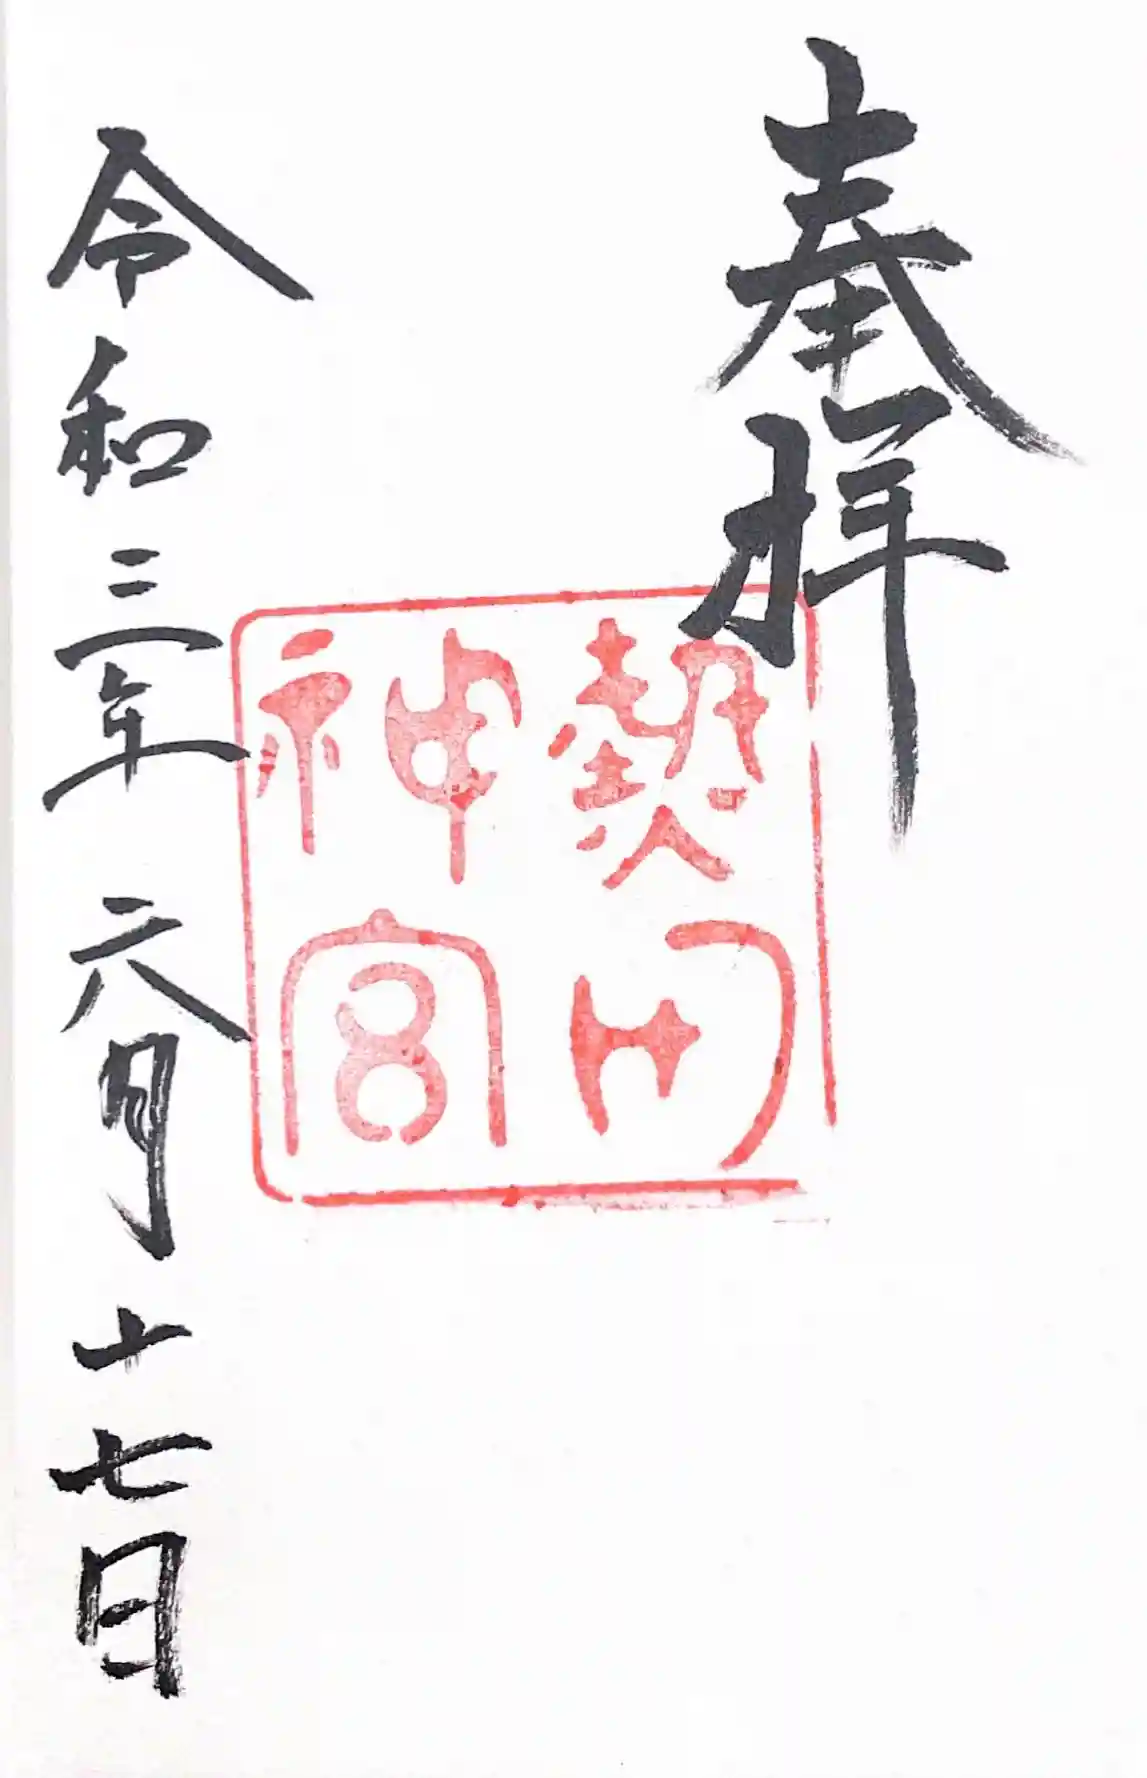 奉拝
熱田
神宮
令和三年六月十七日